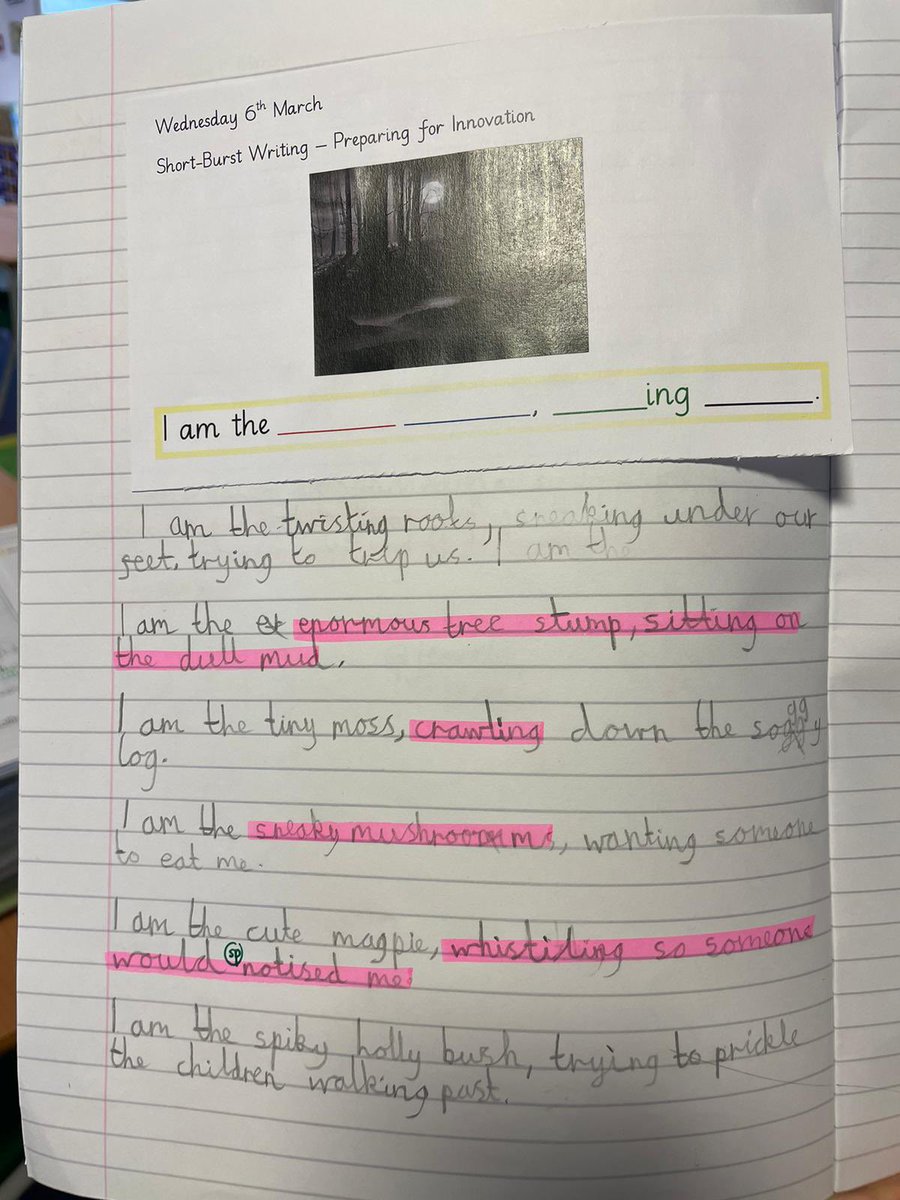 Wednesday 6th March
Short-Burst Writing – Preparing for Innovation
I am the ________ ________, ________ing ________.
I am the twisting roots, sneaking under our
feet, trying to trip us. I am the
I am the ex enormous tree stump, sitting on
the dull mud.
I am the tiny moss, crawling down the soggy
gg
log.
I am the sneaky mushrooms, wanting someone
to eat me.
I am the cute magpie, whistiling so someone
would sp notised me.
I am the spiky holly bush, trying to prickle
the children walking past.